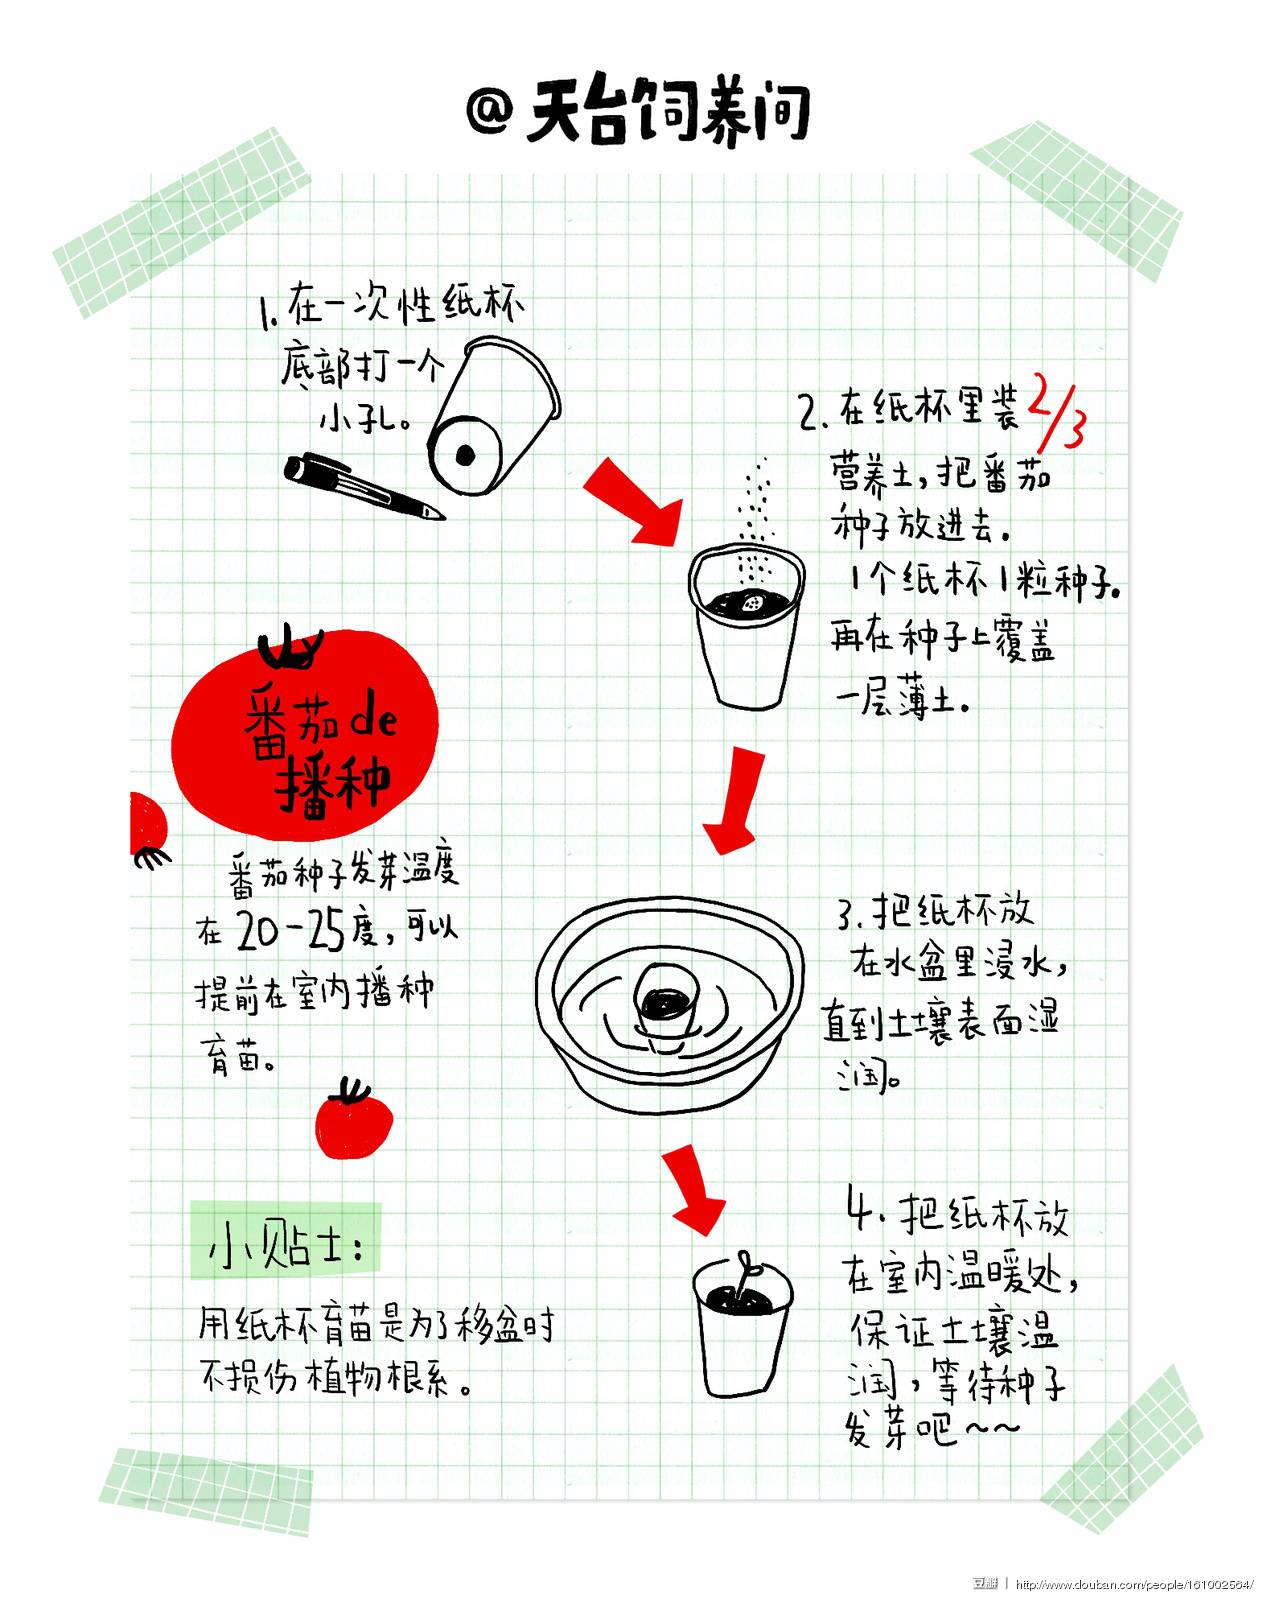 @天台饲养间
1.在一次性纸杯
底部打一个
小孔。
2.在纸杯里装2/3
营养土,把番茄
种子放进去.
1个纸杯1粒种子.
再在种子上覆盖
一层薄土.
番茄de
播种
番茄种子发芽温度
在20-25度,可以
提前在室内播种
育苗。
3.把纸杯放
在水盆里浸水,
直到土壤表面湿
润。
小贴士:
用纸杯育苗是为了移盆时
不损伤植物根系。
4.把纸杯放
在室内温暖处,
保证土壤温
润,等待种子
发芽吧~~
豆瓣 | http://www.douban.com/people/161002564/